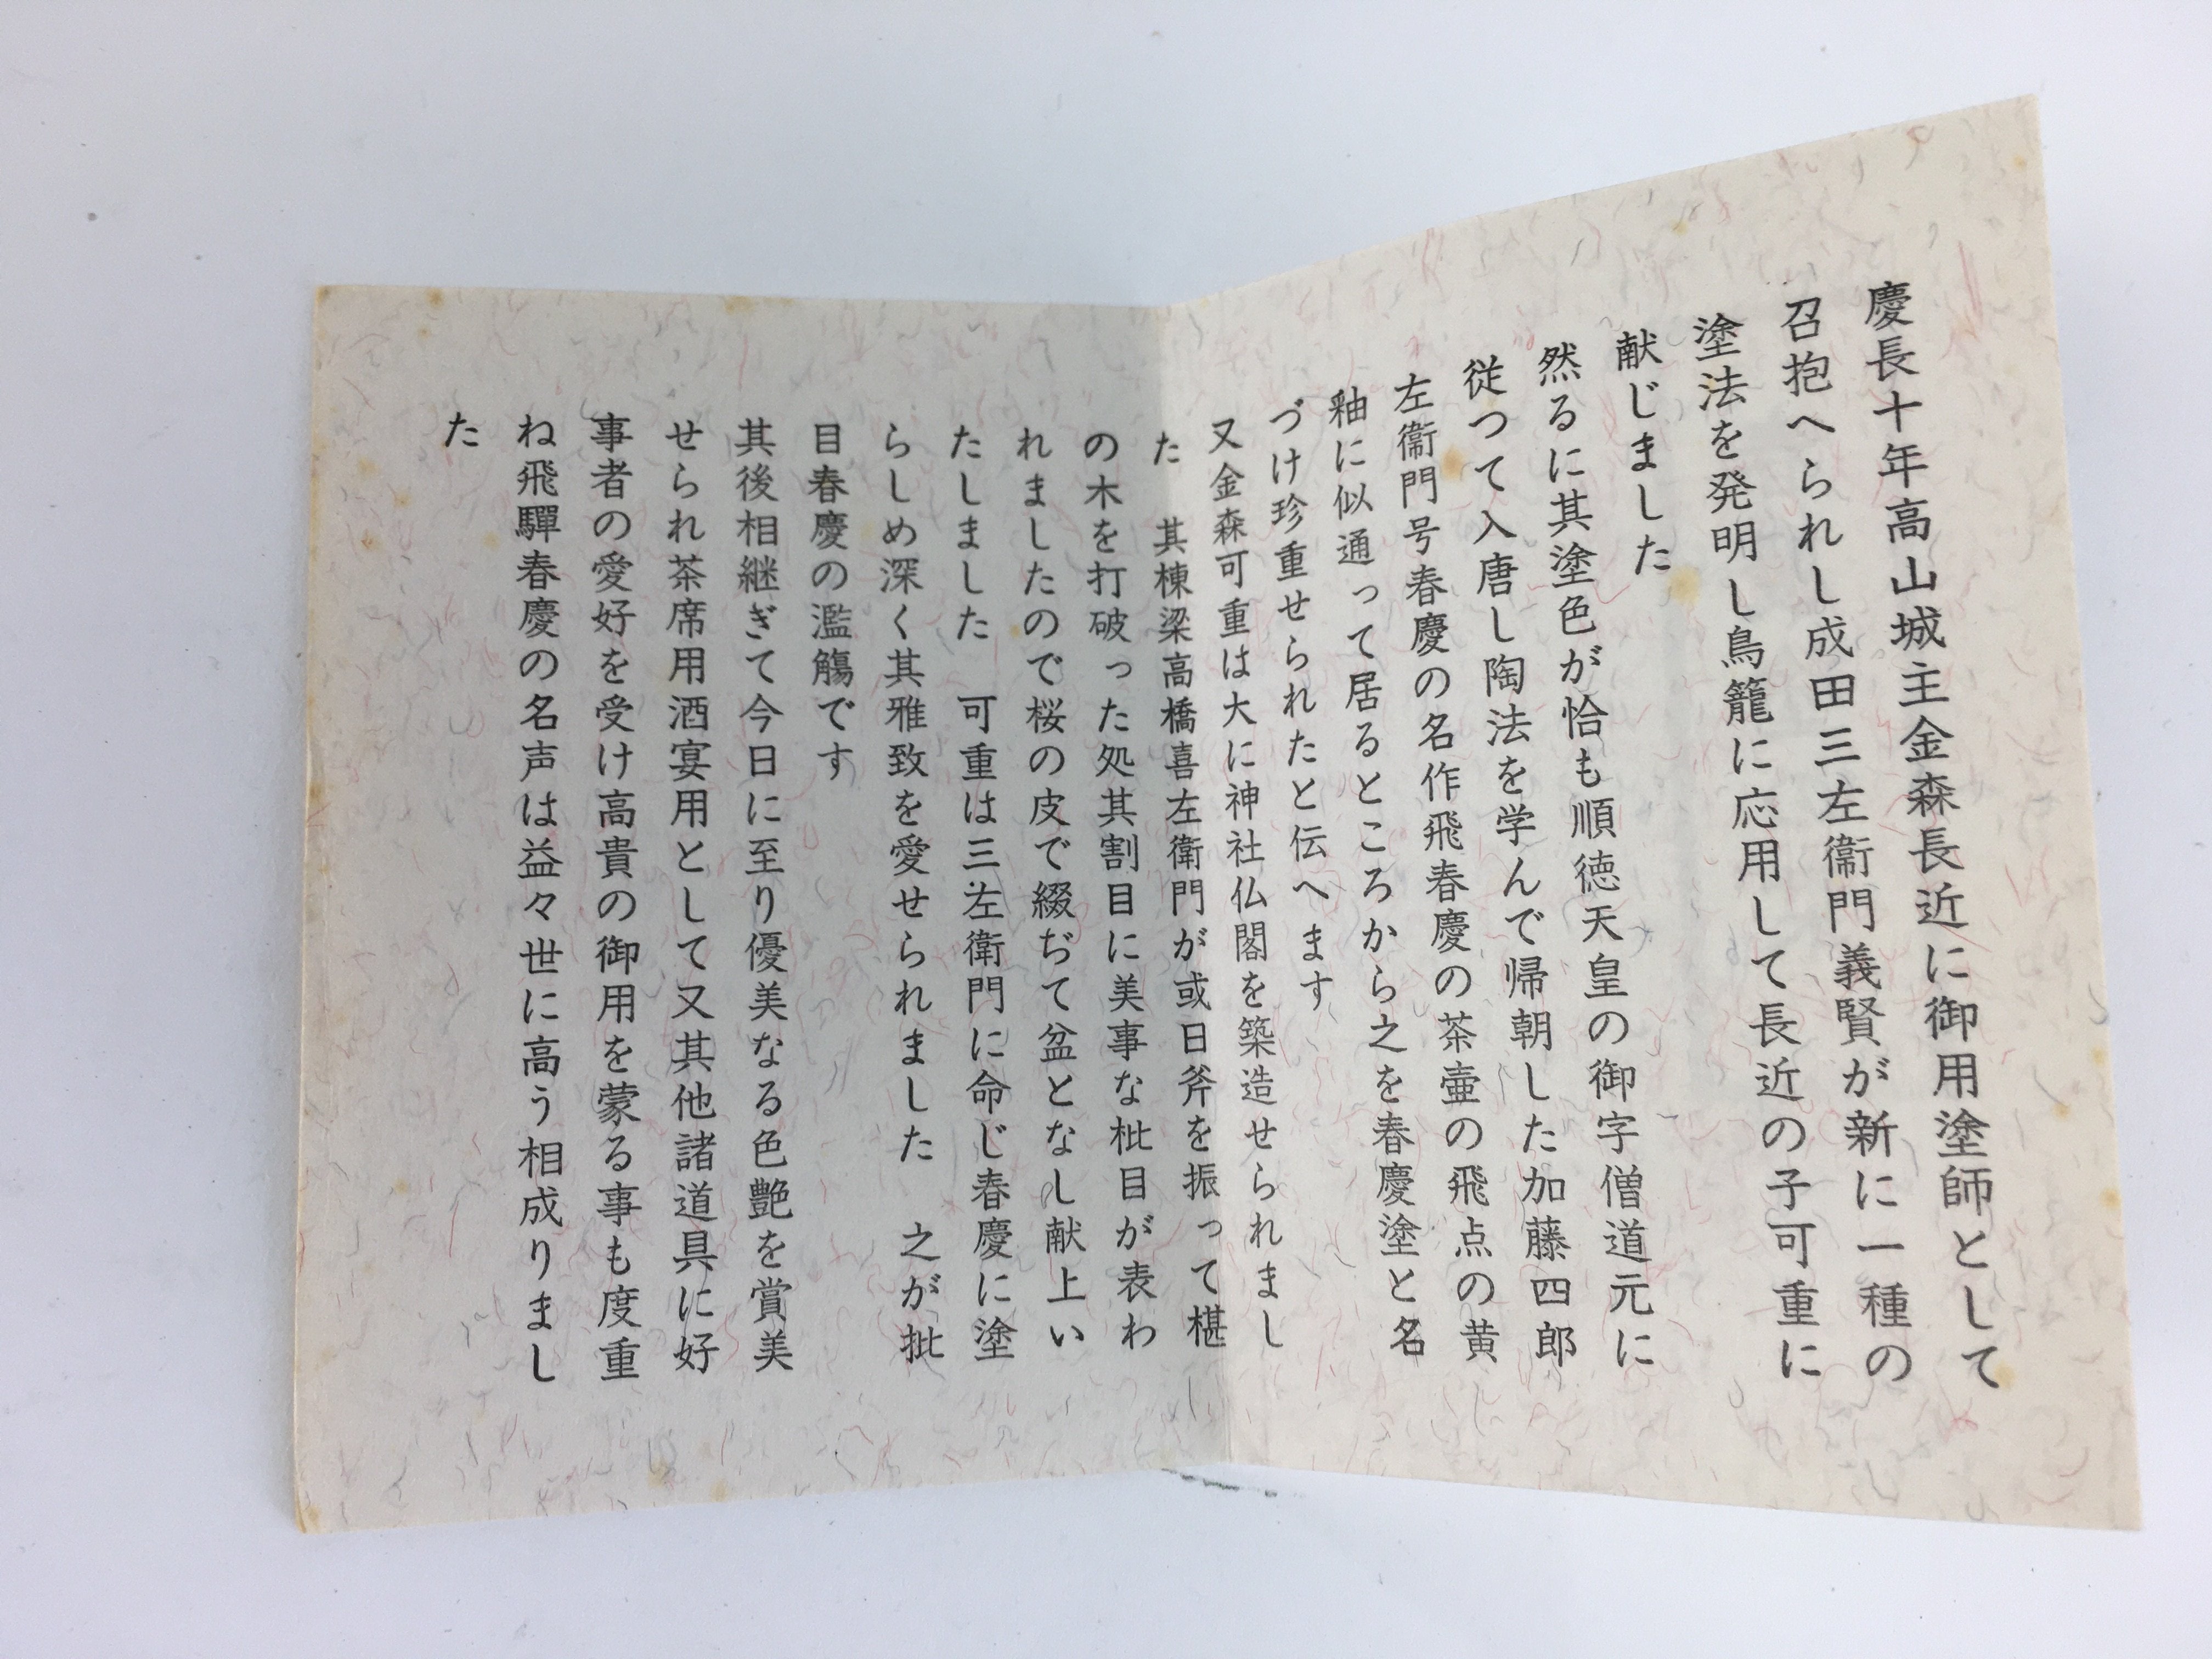 慶長十年高山城主金森長近に御用塗師として
召抱へられし成田三左衞門義賢が新に一種の
塗法を発明し鳥籠に応用して長近の子可重に
献じました
然るに其塗色が恰も順徳天皇の御字僧道元に
従つて入唐し陶法を学んで帰朝した加藤四郎
左衞門号春慶の名作飛春慶の茶壷の飛点の黄
釉に似通って居るところから之を春慶塗と名
づけ珍重せられたと伝へます
又金森可重は大に神社仏閣を築造せられまし
た　其棟梁高橋喜左衛門が或日斧を振って椹
の木を打破った処其割目に美事な枇目が表わ
れましたので桜の皮で綴ぢて盆となし献上い
たしました　可重は三左衛門に命じ春慶に塗
らしめ深く其雅致を愛せられました　之が批
目春慶の濫觴です
其後相継ぎて今日に至り優美なる色艶を賞美
せられ茶席用酒宴用として又其他諸道具に好
事者の愛好を受け高貴の御用を蒙る事も度重
ね飛驒春慶の名声は益々世に高う相成りまし
た